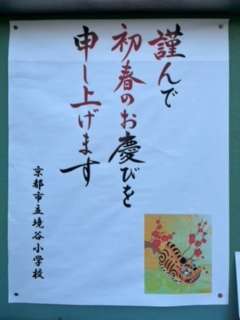 謹んで
初春のお慶びを
申し上げます
京都市立境谷小学校